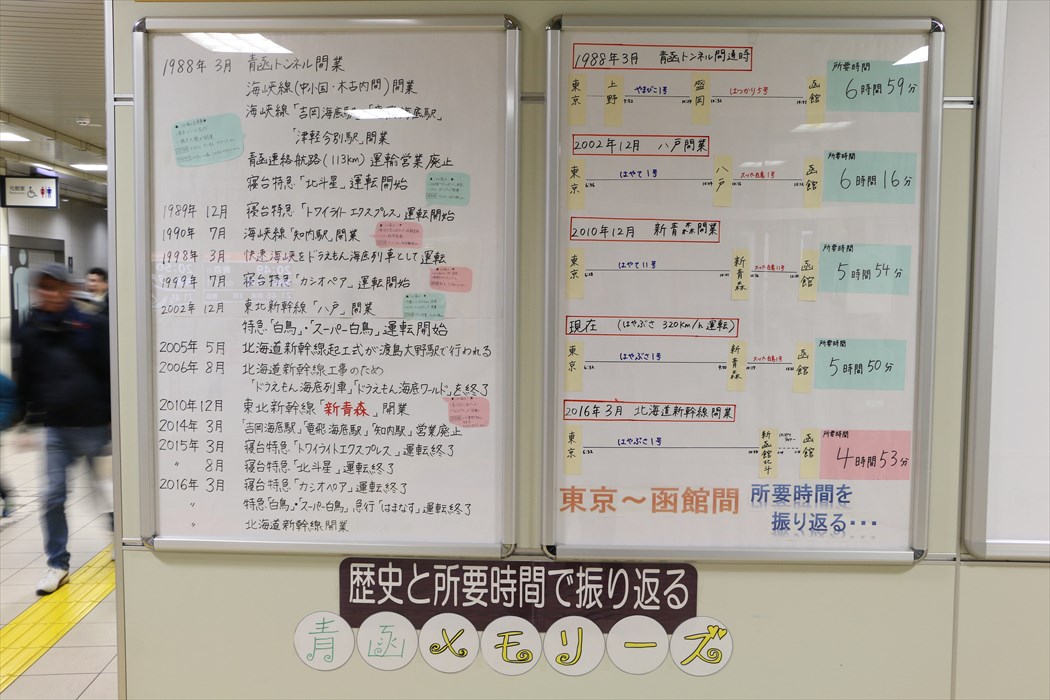 1988年 3月 青函トンネル開業
海峡線(中小国・木古内間)開業
海峡線「吉岡海底駅」「竜飛海底駅」
「津軽今別駅」開業
青函連絡航路(113km)運輸営業廃止
寝台特急「北斗星」運転開始
1989年 12月 寝台特急「トワイライトエクスプレス」運転開始
1990年 7月 海峡線「知内駅」開業
1998年 3月 快速海峡をドラえもん海底列車として運転
1999年 7月 寝台特急「カシオペア」運転開始
2002年 12月 東北新幹線「八戸」開業
特急「白鳥」・「スーパー白鳥」運転開始
2005年 5月 北海道新幹線起工式が渡島大野駅で行われる
2006年 8月 北海道新幹線工事のため
「ドラえもん海底列車」「ドラえもん海底ワールド」を終了
2010年12月 東北新幹線「新青森」開業
2014年 3月 「吉岡海底駅」「竜飛海底駅」「知内駅」営業廃止
2015年 3月 寝台特急「トワイライトエクスプレス」運転終了
〃 8月 寝台特急「北斗星」運転終了
2016年 3月 寝台特急「カシオペア」運転終了
〃 特急「白鳥」・「スーパー白鳥」急行「はまなす」運転終了
〃 北海道新幹線開業
1988年3月 青函トンネル開通時
東京 上野 やまびこ1号 盛岡 はつかり5号 函館
所要時間
6時間59分
2002年12月 八戸開業
東京 はやて1号 八戸 スーパー白鳥1号 函館
所要時間
6時間16分
2010年12月 新青森開業
東京 はやて11号 新青森 スーパー白鳥11号 函館
所要時間
5時間54分
現在 (はやぶさ 320km/h運転)
東京 はやぶさ1号 新青森 スーパー白鳥1号 函館
所要時間
5時間50分
2016年3月 北海道新幹線開業
東京 はやぶさ1号 新函館北斗 函館
所要時間
4時間53分
東京～函館間 所要時間を
振り返る…
歴史と所要時間で振り返る
青函メモリーズ